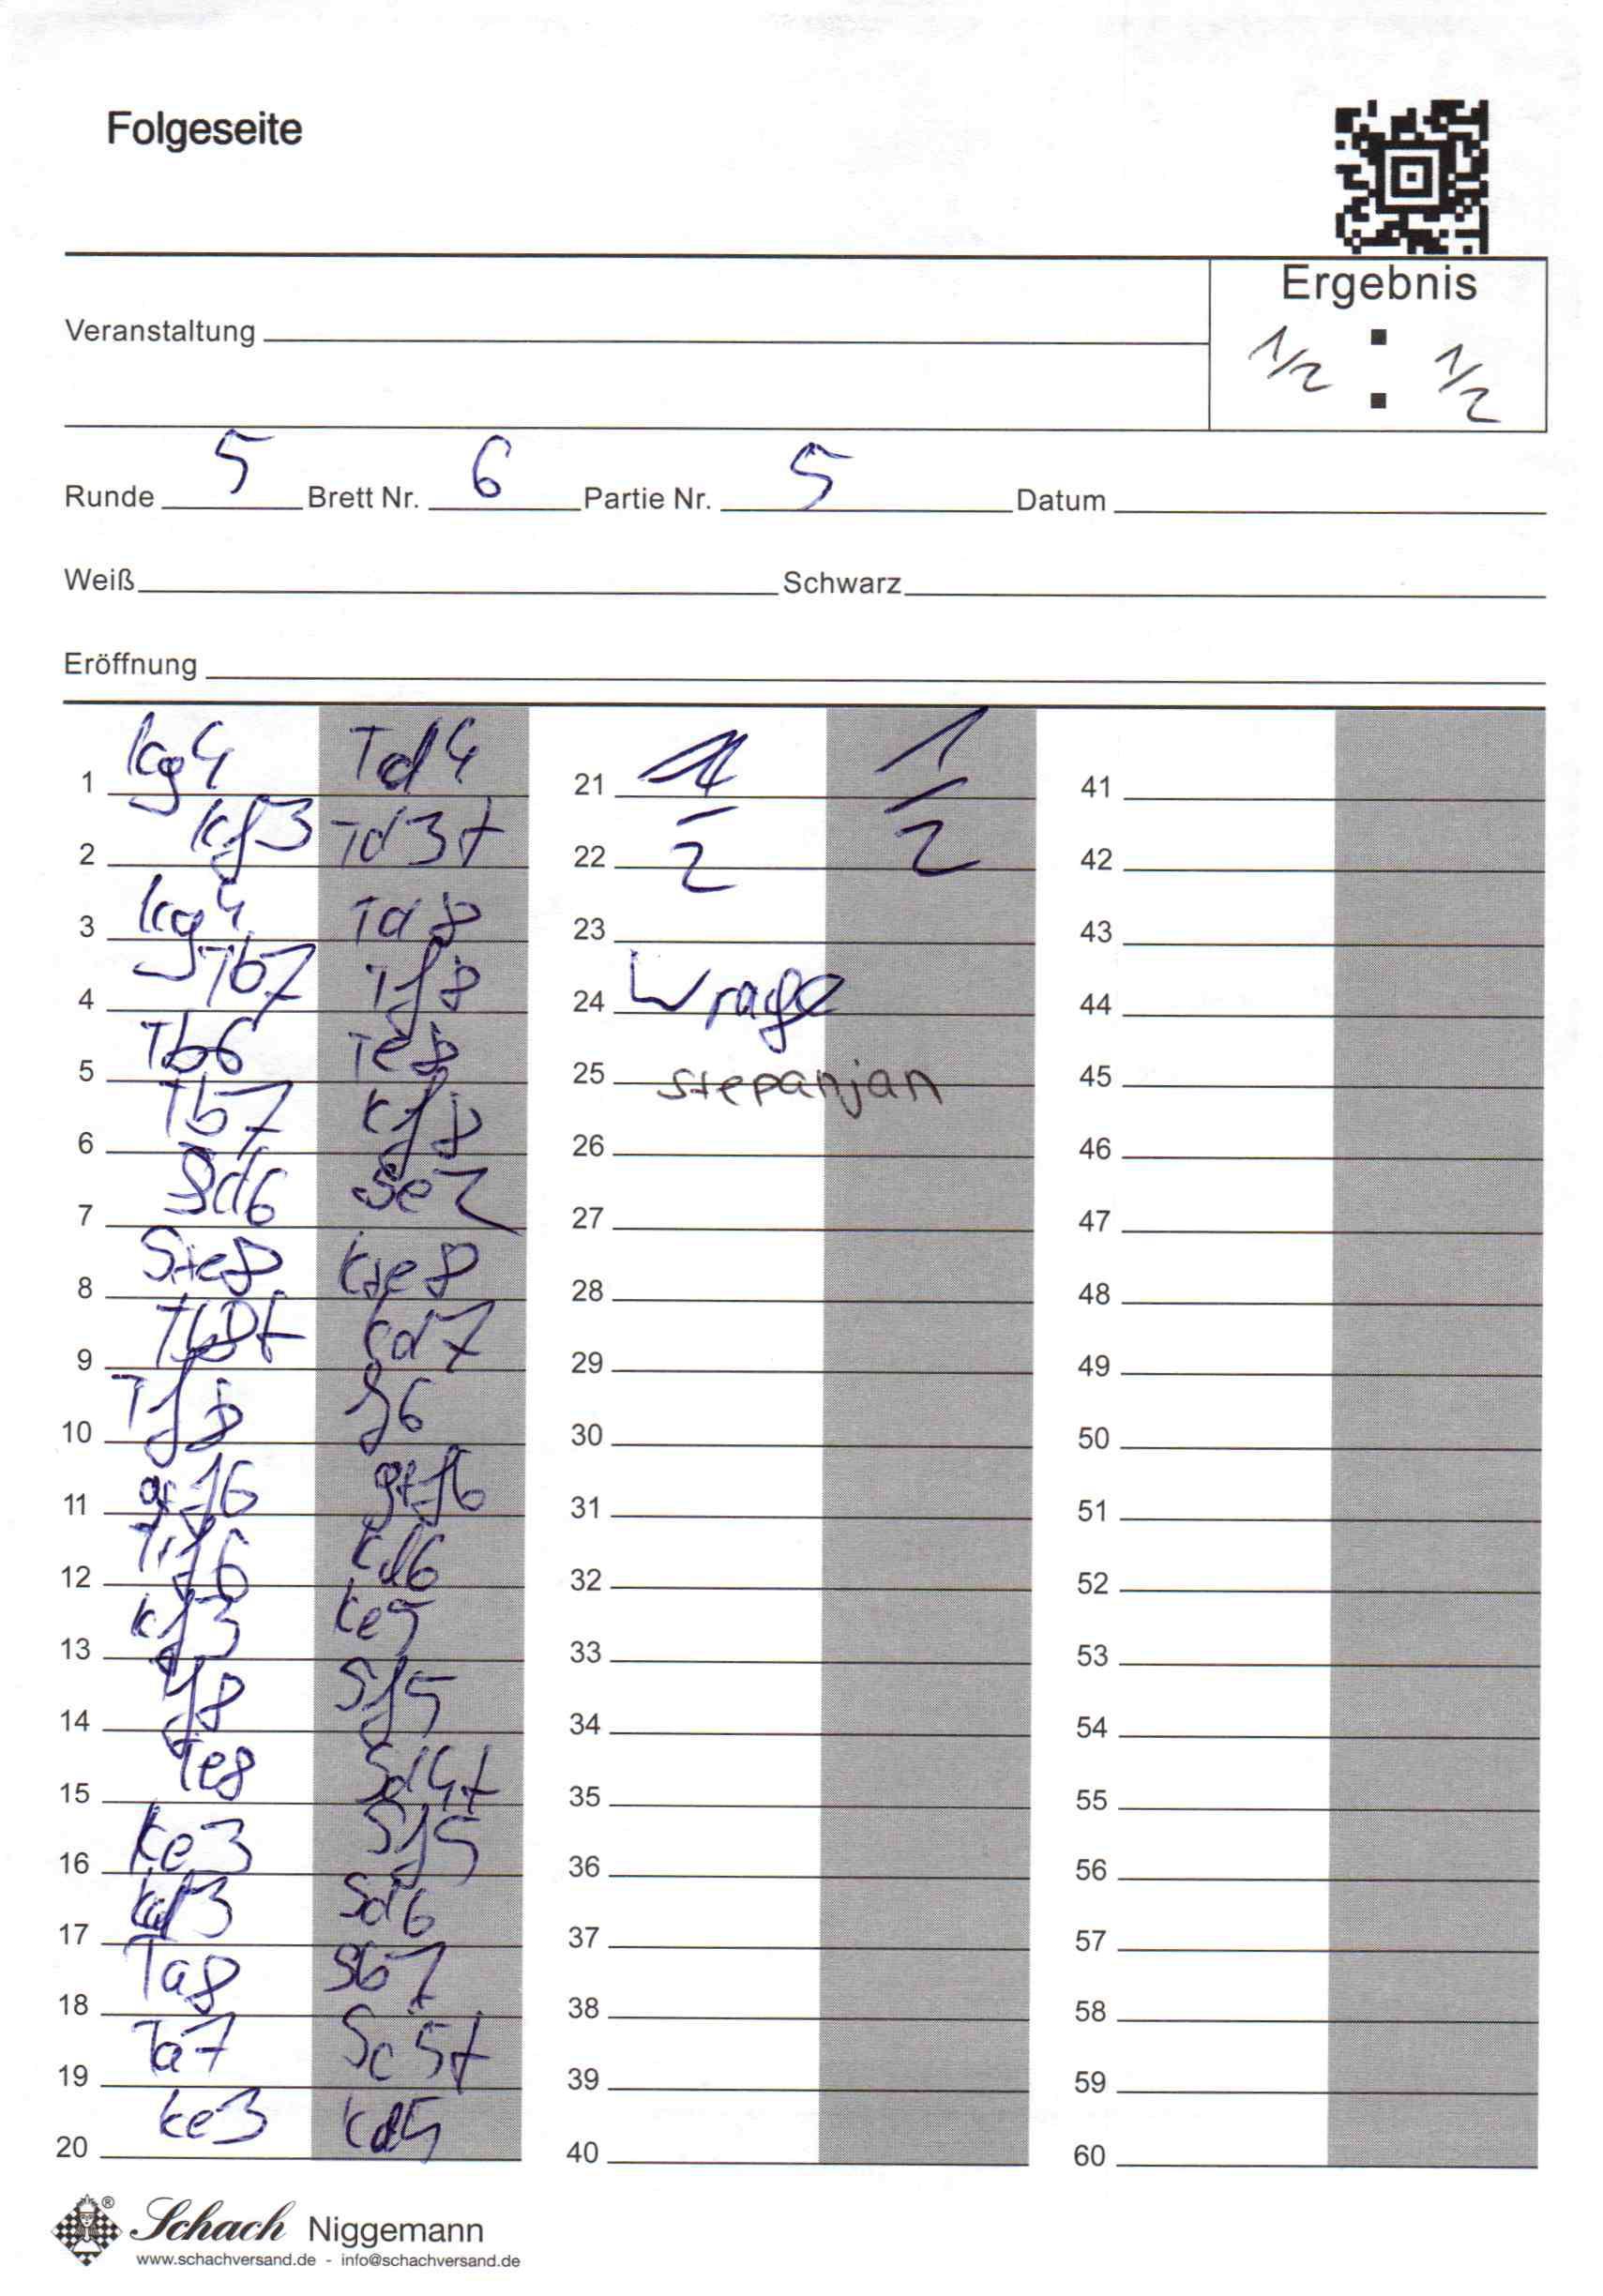 Folgeseite
Ergebnis
Veranstaltung
1/2 : 1/2
Runde 5 Brett Nr. 6 Partie Nr. 5 Datum
Weiß Schwarz
Eröffnung
1 Kg4 Td4
2 Kf3 Td3+
3 Kg4 Td8
4 Tb7 Tf8
5 Tb6 Te8
6 Tb7 Kf8
7 Sd6 Se7
8 S+e8 K+e8
9 Tb8+ Kd7
10 Tf8 f6
11 g+f6 g+f6
12 T+f6 Kd6
13 Kf3 Ke5
14 Tf8 Sf5
15 Te8 Sd4+
16 Ke3 Sf5
17 Kf3 Sd6
18 Ta8 Sb7
19 Ta7 Sc5+
20 Ke3 Kd5
21 1 1
22 2 2
23
24 Wrage
25 Stepanjan
26
27
28
29
30
31
32
33
34
35
36
37
38
39
40
41
42
43
44
45
46
47
48
49
50
51
52
53
54
55
56
57
58
59
60
® Schach Niggemann
www.schachversand.de - info@schachversand.de